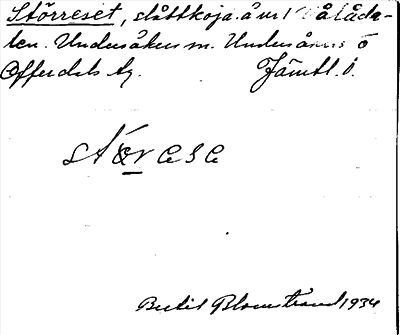 Störreset, slåttkoja å nr 1 Vålåda-
len. Undersåkers sn. Undersåkers o
Offerdals tg. Jämtl. l.
störese
Bertil Blomstrand 1934